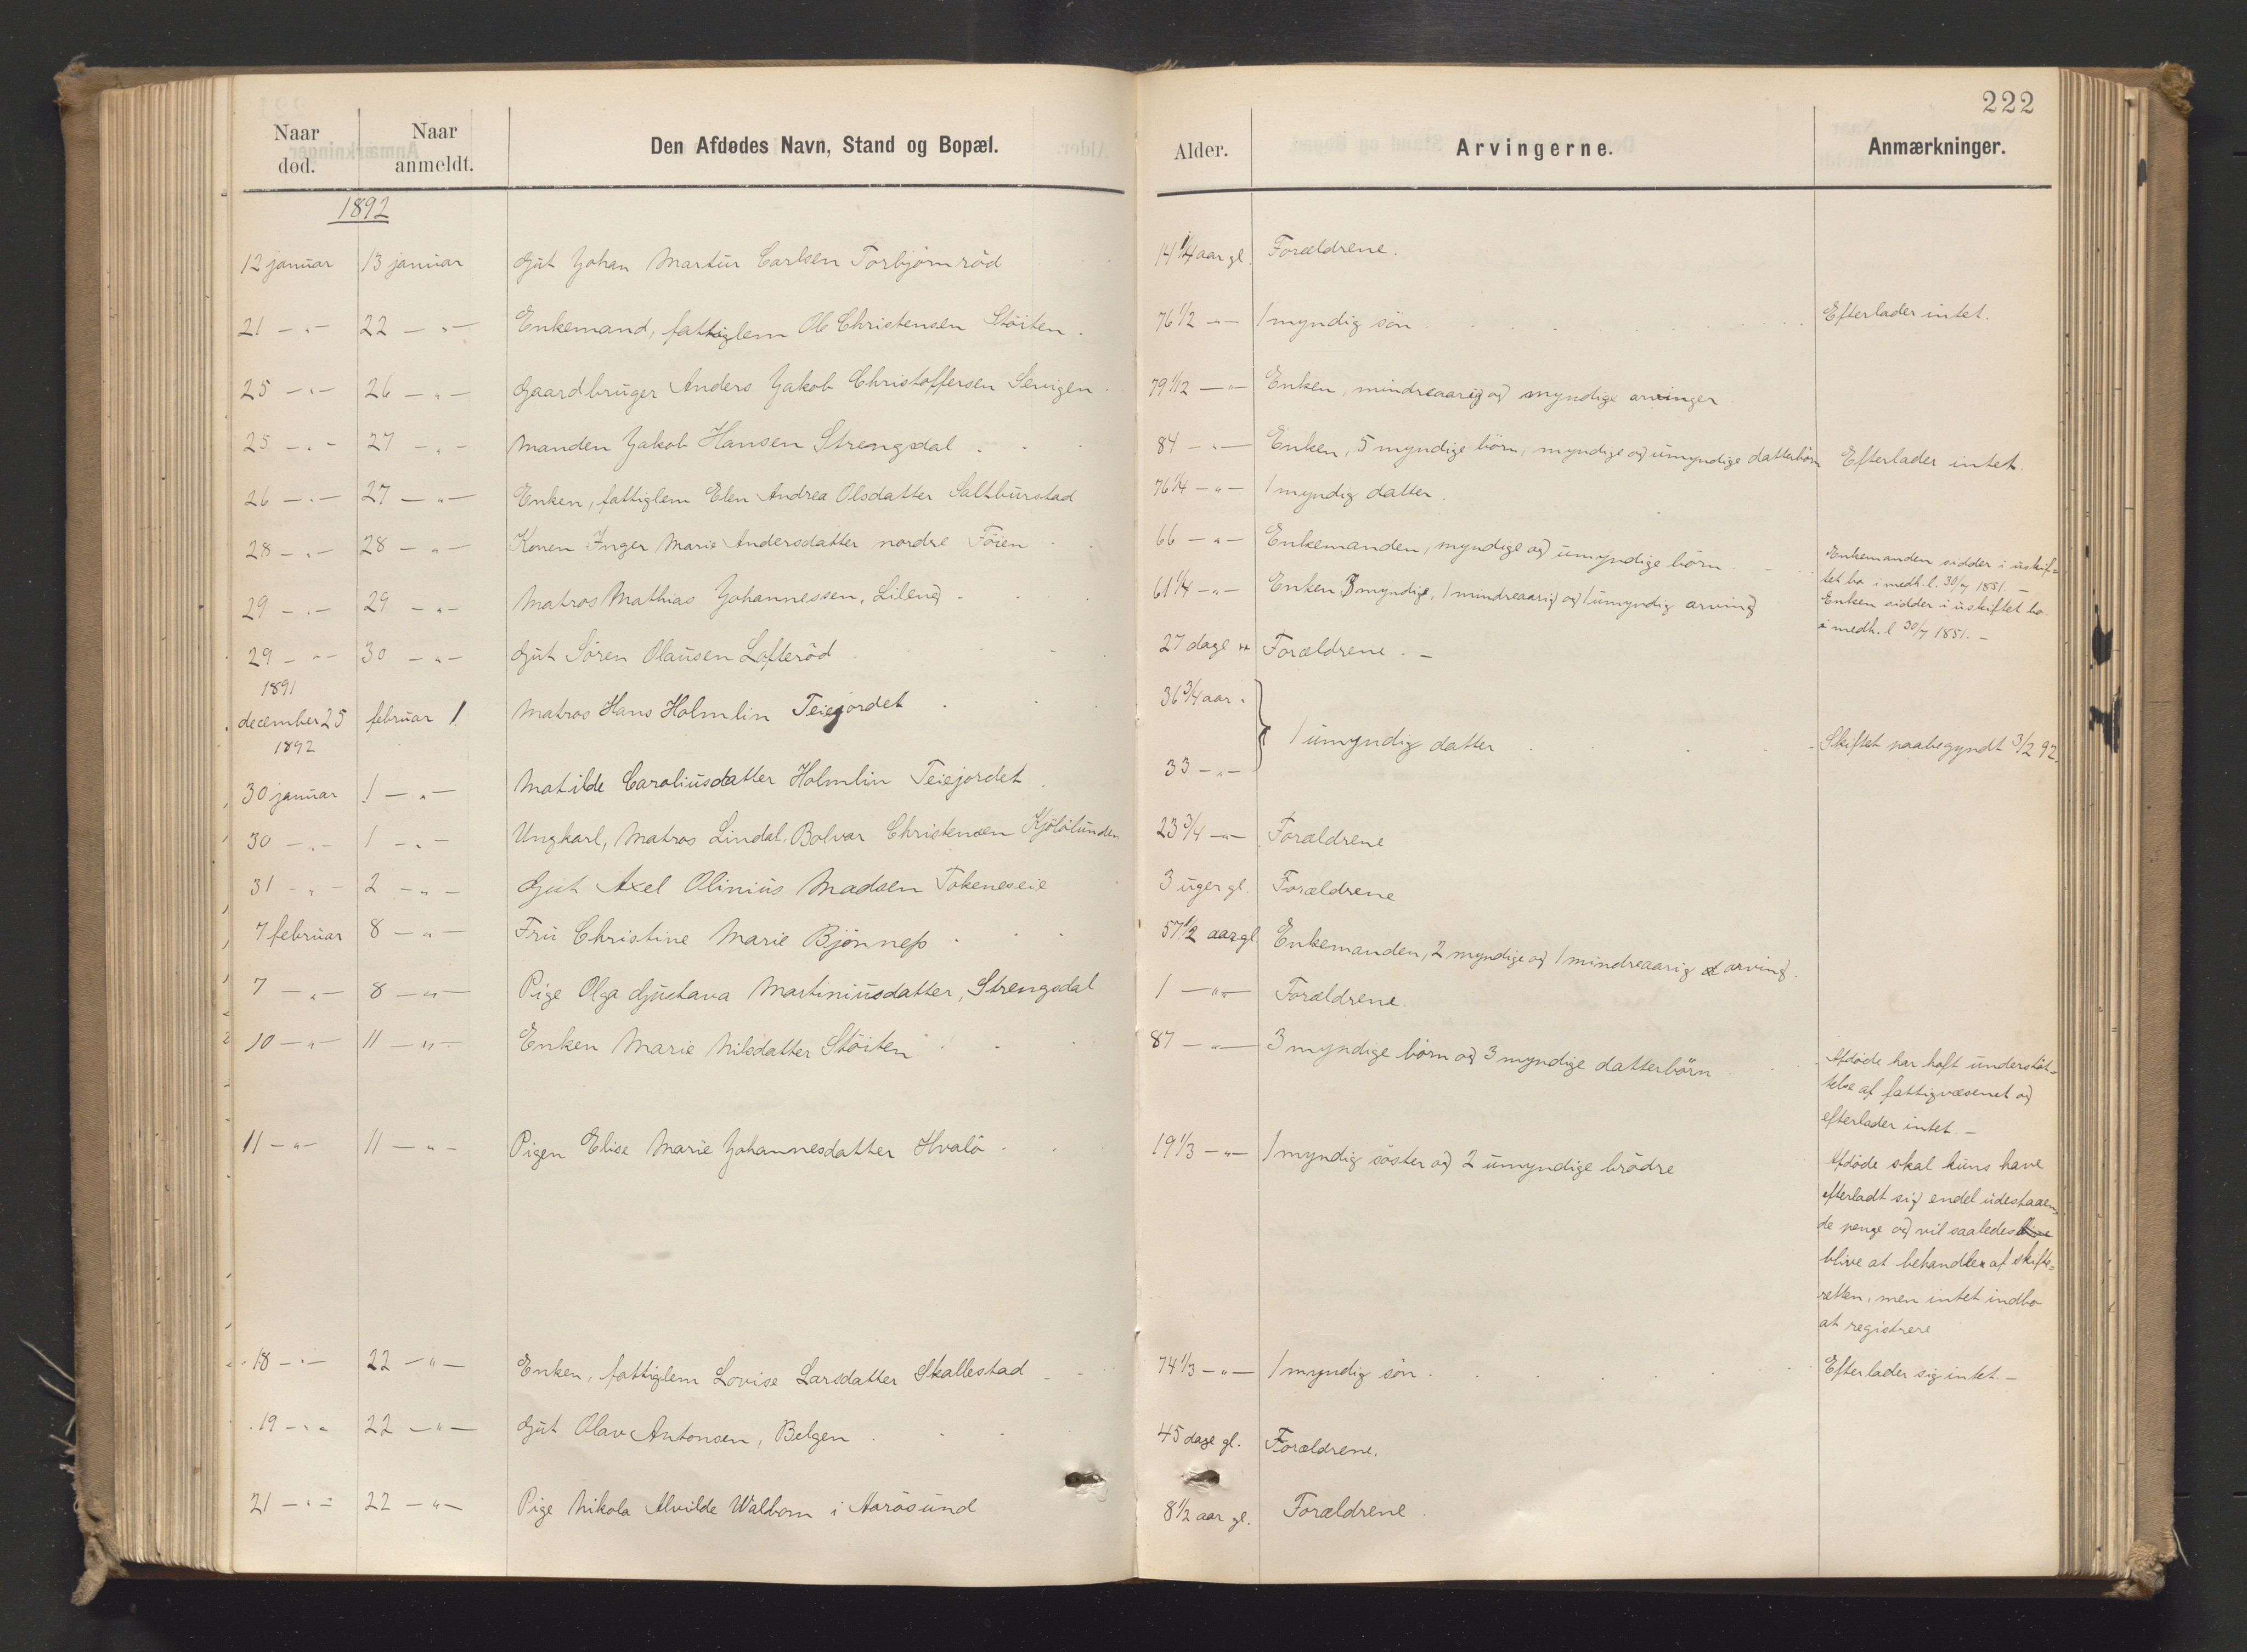 222
Naar død. Naar anmeldt. Den Afdødes Navn, Stand og Bopæl. Alder. Arvingerne. Anmærkninger.
1892
12 januar 13 januar Gut Johan Martin Carlsen Torbjørnrød 14 1/4 aar gl. Forældrene.
21 - " - 22 - " - Enkemand, fattiglem Ole Christensen Støiten. 76 1/2 - " - 1 myndig søn Efterlader intet.
25 - " - 26 - " - Gaardbruger Anders Jakob Christoffersen 79 1/12 - " - Enken, mindreaarig og myndige arvinger
25 - " - 27 - " - Manden Jakob Hansen Strengsdal 84 - " - Enken, 5 myndige børn, myndige og umyndige datterbørn Efterlader intet.
26 - " - 27 - " - Enken, fattiglem Elen Andrea Olsdatter Saltburstad 76 1/4 - " - 1 myndig datter.
28 - " - 28 - " - Konen Inger Marie Andersdatter nordre Föien 66 - " - Enkemanden, myndige og umyndige börn Enkemanden sidder i uskif=
tet bo i medh. l. 30/7 1851. -
29 - " - 29 - " - Matros Mathias Johannessen, Lileng 61 1/4 - " - Enken 3 myndige, 1 mindreaarig og 1 umyndig arving Enken sidder i uskiftet bo
i medh. l 30/7 1851. -
29 - " - 30 - " - Gut Sören Olausen Lofteröd 27 dage " Forældrene. -
1891
december 25 februar 1 Matros Hans Holmlin Teiejordet 36 3/4 aar "
1 umyndig datter Skiftet paabegyndt 3/2 92.
1892
30 januar 1 - " - Matilde Caroliusdatter Holmlin Teiejordet 33 - " -
30 - " - 1 - " - Ungkarl, Matros Lindal Bolvar Christensen Kjölölunden 23 3/4 - " - Forældrene
31 - " - 2 - " - Gut Axel Olinius Madsen Tokeneseie 3 uger gl. Forældrene
7 februar 8 - " - Fru Christine Marie Bjönness 57 1/2 aar gl. Enkemanden, 2 myndige og 1 mindreaarig arving.
7 - " - 8 - " - Pige Olga Gustava Martiniusdatter, Strengsdal 1 - " - Forældrene.
10 - " 11 - " - Enken Marie Nilsdatter Stöiten 87 - " - 3 myndige börn og 3 myndige datterbörn Afdöde har haft understöt-
telse af fattigvæsenet og
efterlader intet. -
11 - " - 11 - " - Pigen Elise Marie Johannesdatter Hvalö 19 1/3 - " - 1 myndig söster og 2 umyndige brödre Afdöde skal kuns have
efterladt sig endel udestaaen=
de penge og vil saaledes
blive at behandles af skifte=
retten, men intet indbo
at registrere
18 - " - 22 - " - Enken, fattiglem Lovise Larsdatter Skallestad 74 1/3 - " - 1 myndig sön. Efterlader sig intet. -
19 - " - 22 - " - Gut Olav Antonsen, Belgen 45 dage gl. Forældrene.
21 - " - 22 - " - Pige Nikola Alvilde Walbom i Aarösund 8 1/2 aar gl. Forældrene.